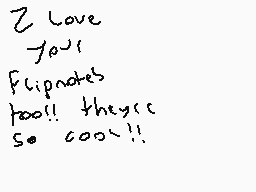 I Love
your
Flipnotes
too!! they're
so cool!!